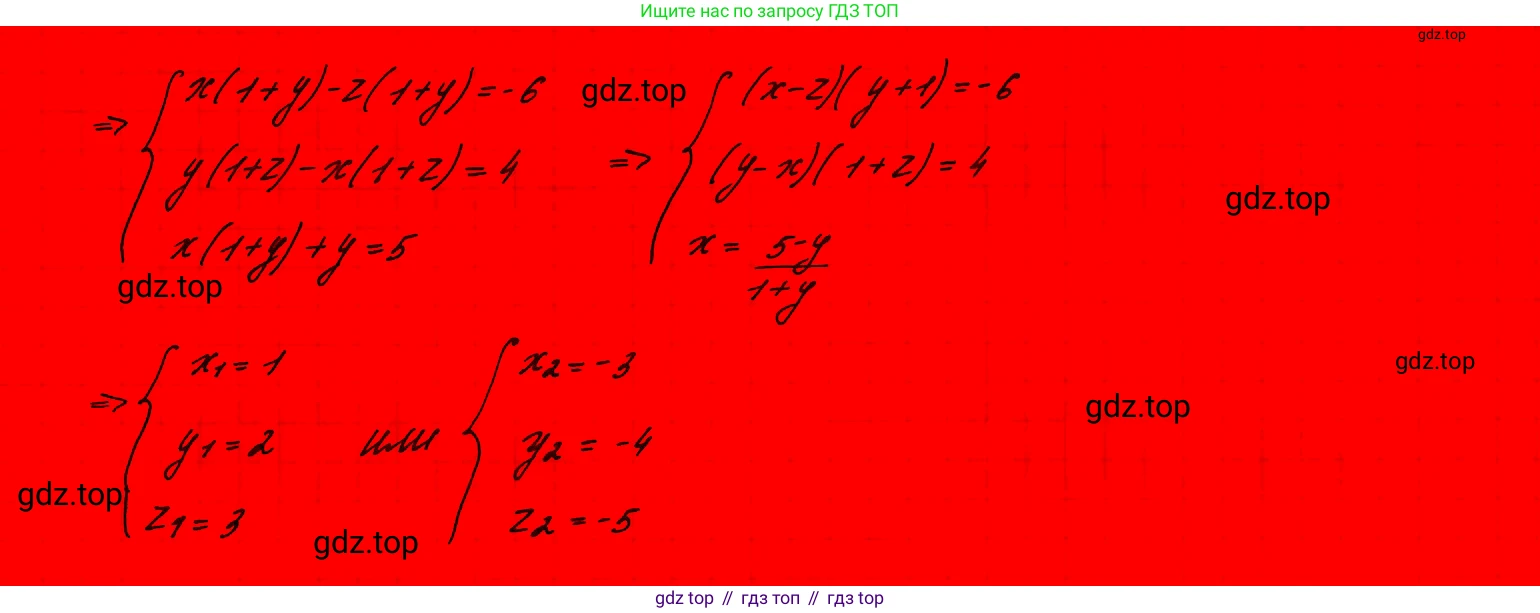 Ищите нас по запросу ГДЗ ТОП
gdz.top
=> { x(1+y)-z(1+y)=-6
y(1+z)-x(1+z)=4
x(1+y)+y=5
gdz.top
=> { (x-z)(y+1)=-6
(y-x)(1+z)=4
x = 5-y
1+y
gdz.top
gdz.top
=> { x1=1
y1=2
z1=3
или { x2=-3
y2=-4
z2=-5
gdz.top
gdz.top
gdz.top
gdz.top
gdz.top // гдз топ // гдз top